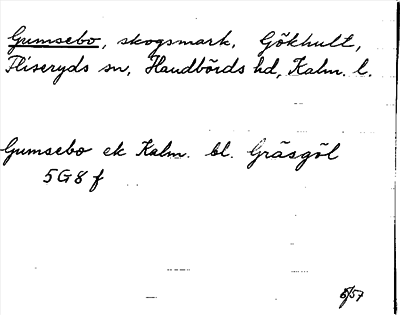 Gumsebo, skogsmark, Gökhult,
Fliseryds sn, Handbörds hd, Kalm. l.
Gumsebo ek Kalm. bl. Gräsgöl
5G8f